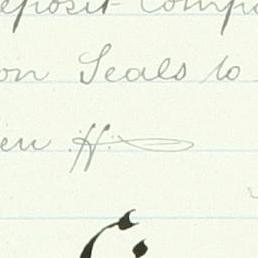 eposit Compa
on Seals to
en H